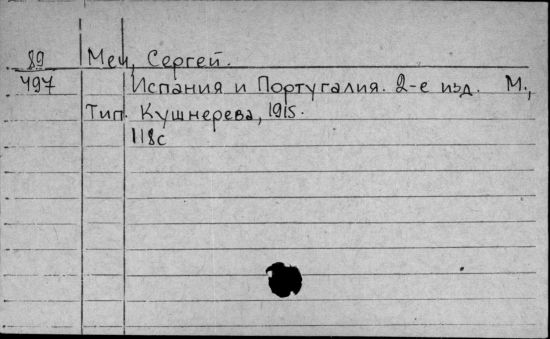 89 Меч, Сергей.
497 Испания и Португалия. 2-е изд. М.,
Тип. Кушнерева, 1915.
118с